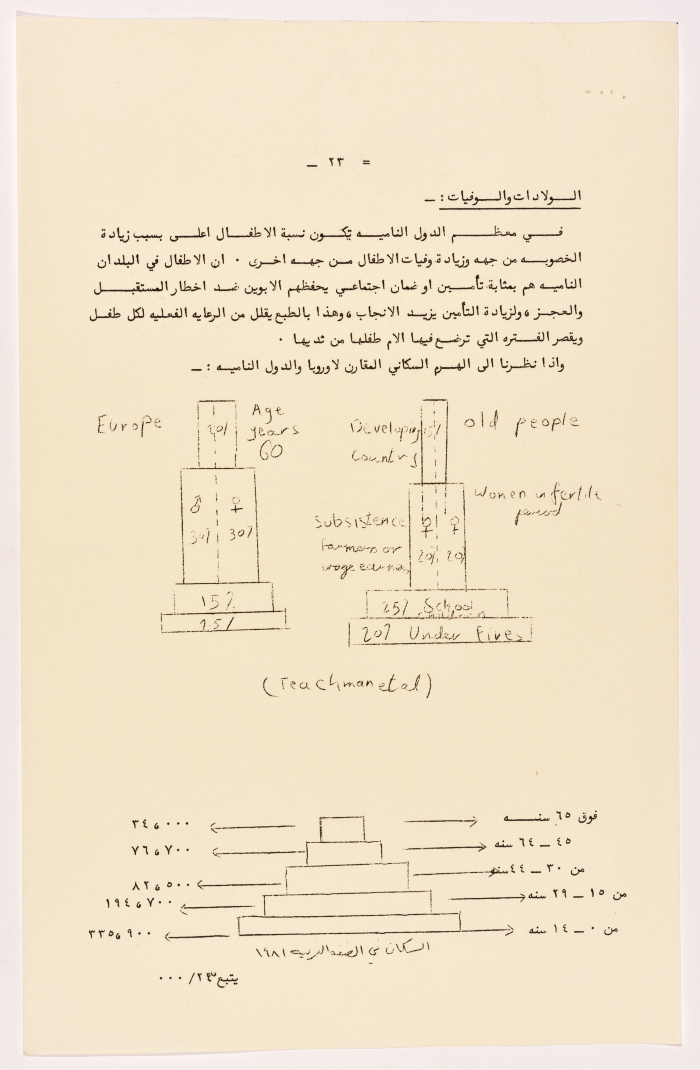 = ٢٣ —
الـولادات والـوفيات : —
فــي معظــم الدول الناميـه تكـون نسبة الاطفـال اعلـى بسبب زيادة
الخصوبـه من جهه وزيادة وفيات الاطفال مـن جهـه اخـرى ٠ ان الاطفال في البلدان
الناميـه هم بمثابة تأمـين او ضمان اجتماعـي يحفظهم الابوين ضـد اخطار المستقبـل
والعجـز ، ولزيادة التأمين يزيـد الانجاب ، وهذا بالطبع يقلل من الرعايه الفعليه لكل طفـل
ويقصر الفـتره التي ترضـع فيها الام طفلهـا من ثديها ٠
واذا نظـرنا الى الهـرم السكاني المقارن لاوروبا والدول الناميـه : —
Europe
Age
years
60
♂ ♀
30% 30%
15%
Developing
Country
old people
Women in fertile
period
Subsistence
Farmers or
wage earners
♀ ♀
20% 20%
25% School
20% Under Fives
(Teachman et al)
٣٤،٠٠٠ فوق ٦٥ سنـه
٧٦،٧٠٠ ٤٥ — ٦٤ سنه
٨٢،٥٠٠ من ٣٠ — ٤٤ سنه
١٩٤،٧٠٠ من ١٥ — ٢٩ سنه
٣٣٥،٩٠٠ من ٠ — ١٤ سنه
السكان في الضفه الغربيه ١٩٨١
يتبع ٢٤/٠٠٠